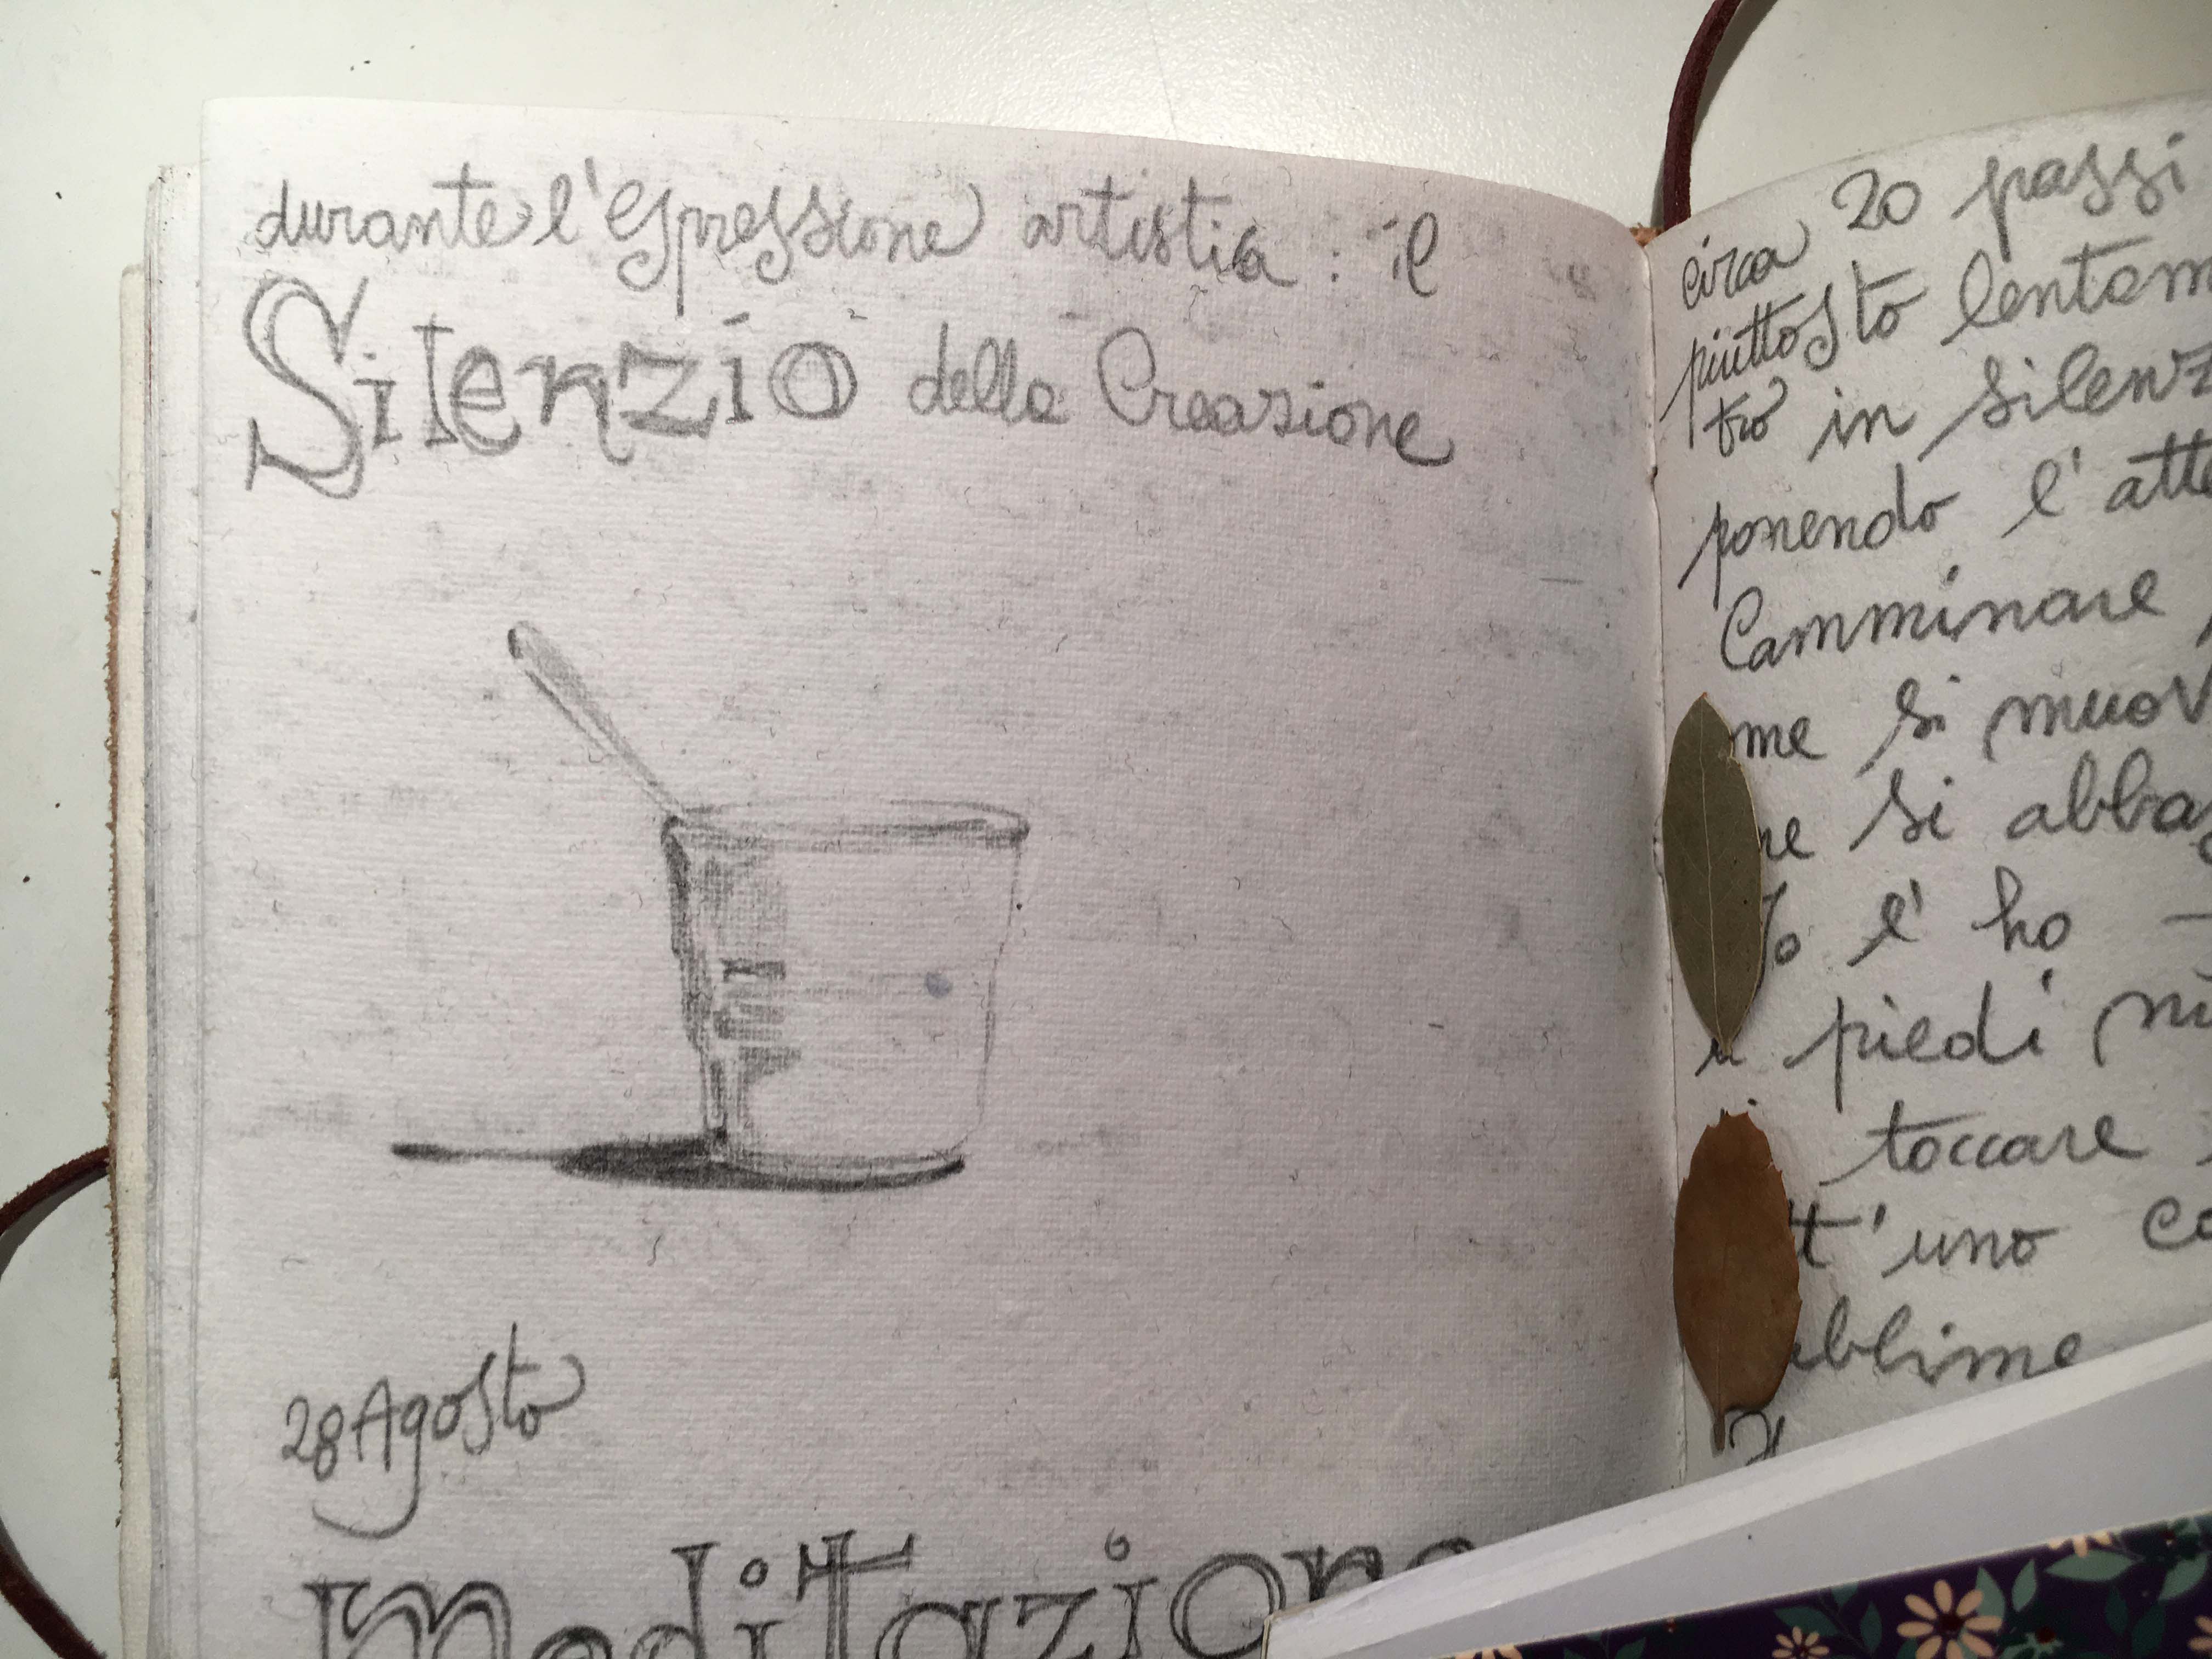 durante l'espressione artistica : il
Silenzio della Creazione
28 Agosto
Meditazione
circa 20 passi
piuttosto lentam
tro in silenz
ponendo l'atte
Camminare
me si muov
ne si abbra
Io l'ho
piedi nu
toccare
tt'uno co
ublime